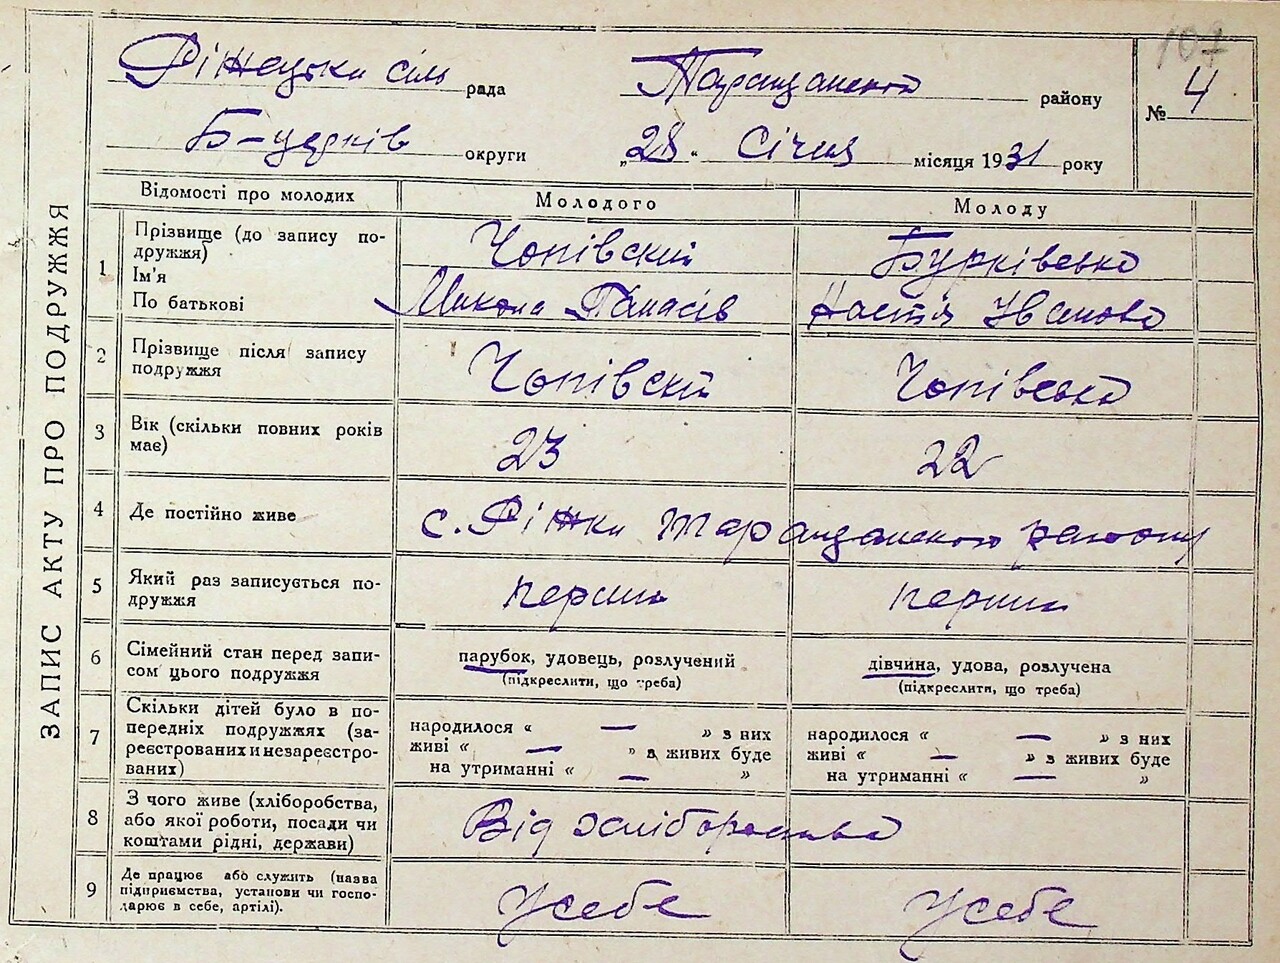 107
Ріжецька сіль рада Таращанського району № 4
Б-церків округи „28" Січня місяця 1931 року
ЗАПИС АКТУ ПРО ПОДРУЖЖЯ
Відомості про молодих Молодого Молоду
1 Прізвище (до запису по-
дружжя) Чопівский Бурківська
Ім'я
По батькові Микола Панасів Настія Іванова
2 Прізвище після запису
подружжя Чопівский Чопівська
3 Вік (скільки повних років
має) 23 22
4 Де постійно живе с. Ріжки Таращанського району
5 Який раз записується по-
дружжя перший перший
6 Сімейний стан перед запи-
сом цього подружжя
парубок, удовець, розлучений дівчина, удова, розлучена
(підкреслити, що треба) (підкреслити, що треба)
7 Скільки дітей було в по-
передніх подружжях (за-
реєстрованих и незареєстро-
ваних)
народилося « — » з них народилося « — » з них
живі « — » з живих буде живі « — » з живих буде
на утриманні « — » на утриманні « — »
8 З чого живе (хліборобства,
або якої роботи, посади чи
коштами рідні, держави) Від хліборобства
9 Де працює або служить (назва
підприємства, установи чи госпо-
дарює в себе, артілі). У себе У себе